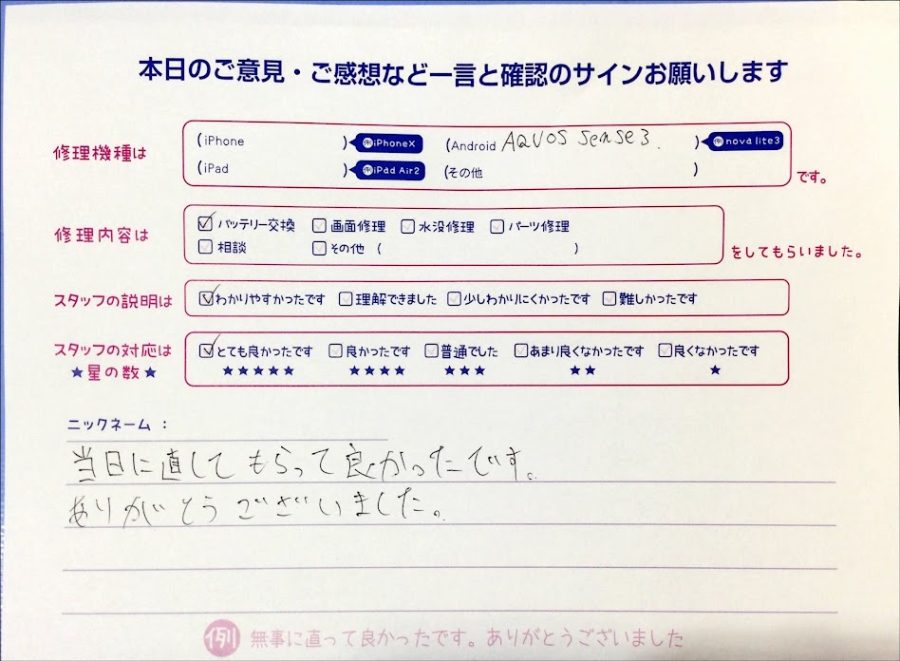 本日のご意見・ご感想など一言と確認のサインお願いします
修理機種は
(iPhone ) 例iPhoneX (Android AQUOS sense3. ) 例nova lite3
(iPad ) 例iPad Air2 (その他 ) です。
修理内容は
バッテリー交換 画面修理 水没修理 パーツ修理
相談 その他 ( ) をしてもらいました。
スタッフの説明は わかりやすかったです 理解できました 少しわかりにくかったです 難しかったです
スタッフの対応は とても良かったです 良かったです 普通でした あまり良くなかったです 良くなかったです
★星の数★ ★★★★★ ★★★★ ★★★ ★★ ★
ニックネーム：
当日に直してもらって良かったです。
ありがとうございました。
例 無事に直って良かったです。ありがとうございました